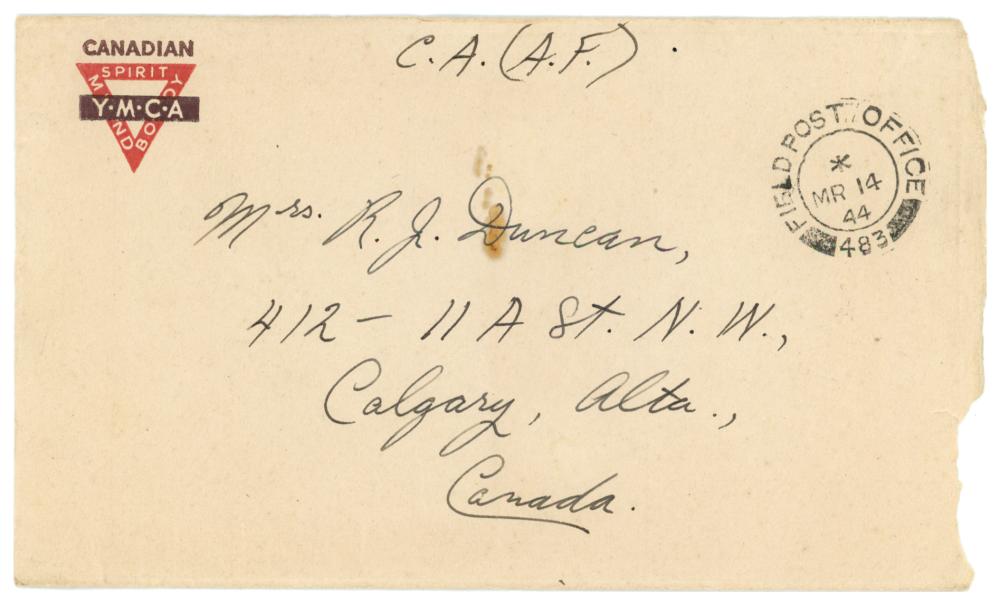 C.A.(A.F.)
CANADIAN
SPIRIT
MIND
BODY
Y·M·C·A
FIELD POST OFFICE
*
MR 14
44
483
Mrs. R. J. Duncan,
412 - 11 A St. N. W.,
Calgary, Alta.,
Canada.